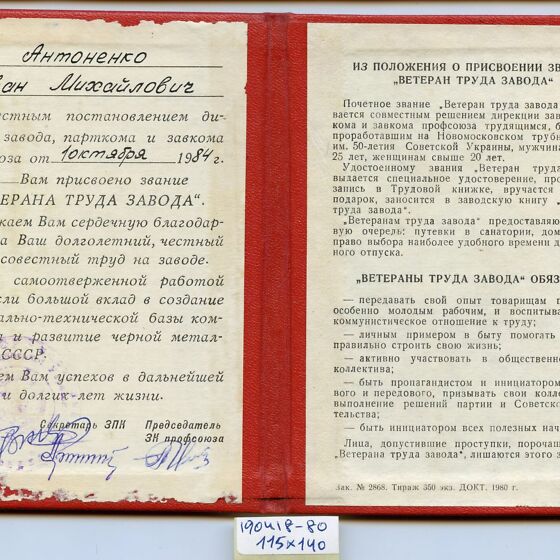 Антоненко
ван Михайлович
стным постановлением ди-
завода, парткома и завкома
юза от 1 октября 1984 г.
Вам присвоено звание
ЕРАНА ТРУДА ЗАВОДА“.
каем Вам сердечную благодар-
а Ваш долголетний, честный
совестный труд на заводе.
самоотверженной работой
сли большой вклад в создание
ально-технической базы ком-
а и развитие черной метал-
СССР.
ем Вам успехов в дальнейшей
и долгих лет жизни.
Секретарь ЗПК Председатель
ЗК профсоюза
ИЗ ПОЛОЖЕНИЯ О ПРИСВОЕНИИ ЗВ
„ВЕТЕРАН ТРУДА ЗАВОДА“
Почетное звание „Ветеран труда завода
вается совместным решением дирекции зав
кома и завкома профсоюза трудящимся, б
проработавшим на Новомосковском трубн
им. 50-летия Советской Украины, мужчина
25 лет, женщинам свыше 20 лет.
Удостоенному звания „Ветеран труда
выдается специальное удостоверение, про
запись в Трудовой книжке, вручается
подарок, заносится в заводскую книгу „
труда завода“.
„Ветеранам труда завода“ предоставляю
вую очередь: путевки в санатории, дом
право выбора наиболее удобного времени д
ного отпуска.
„ВЕТЕРАНЫ ТРУДА ЗАВОДА“ ОБЯЗ
— передавать свой опыт товарищам п
особенно молодым рабочим, и воспитыва
коммунистическое отношение к труду;
— личным примером в быту помогать
правильно строить свою жизнь;
— активно участвовать в общественно
коллектива;
— быть пропагандистом и инициатором
вого и передового, призывать свои коллек
выполнение решений партии и Советско
тельства;
— быть инициатором всех полезных нач
Лица, допустившие проступки, порочащ
„Ветерана труда завода“, лишаются этого з
Зак. № 2868. Тираж 350 экз. ДОКТ. 1980 г.
190418-80
115×140